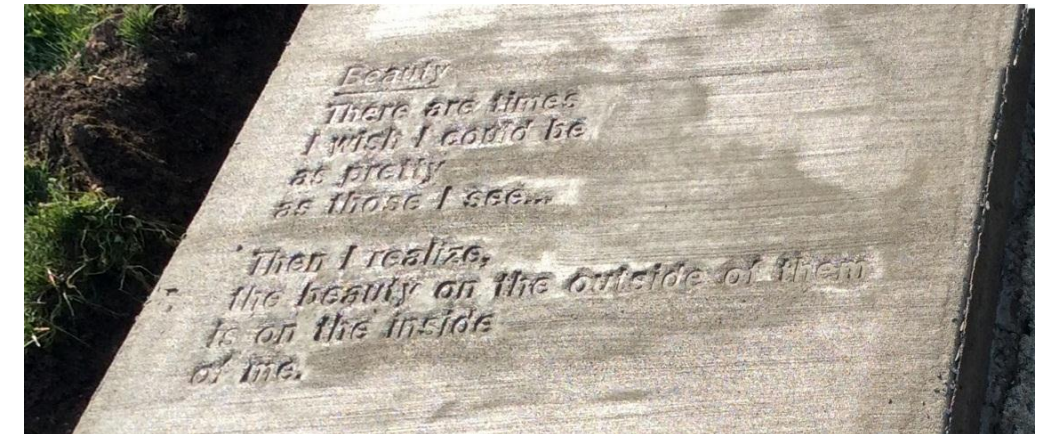 Beauty
There are times
I wish I could be
as pretty
as those I see...
Then I realize,
the beauty on the outside of them
is on the inside
of me.